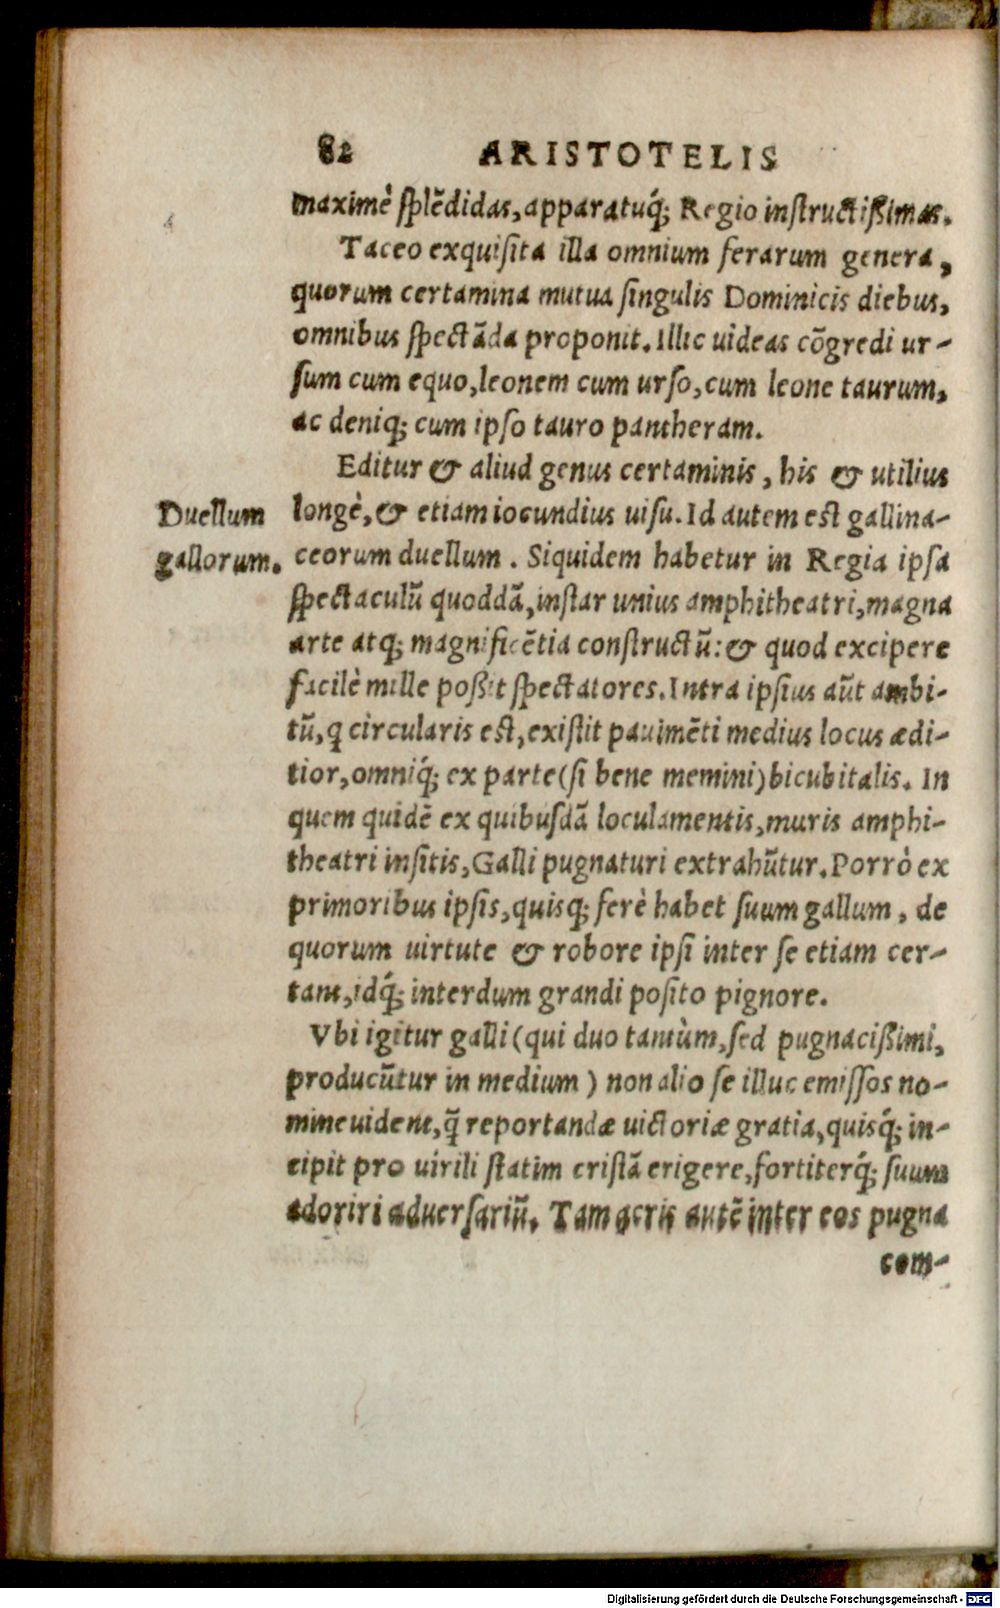 82 ARISTOTELIS
maximè ſplēdidas, apparatuq́; Regio inſtructiſsimas.
Taceo exquiſita illa omnium ferarum genera,
quorum certamina mutua ſingulis Dominicis diebus,
omnibus ſpectāda proponit. Illic uideas cōgredi ur-
ſum cum equo, leonem cum urſo, cum leone taurum,
ac deniq; cum ipſo tauro pantheram.
Editur & aliud genus certaminis, his & utilius
Duellum longè, & etiam iocundius uiſu. Id autem eſt gallina-
gallorum. ceorum duellum. Siquidem habetur in Regia ipſa
ſpectaculū quoddā, inſtar unius amphitheatri, magna
arte atq; magnificētia conſtructū: & quod excipere
facilè mille poſsit ſpectatores. Intra ipſius aūt ambi-
tū, q circularis eſt, exiſtit pauimēti medius locus ædi-
tior, omniq́; ex parte (ſi bene memini) bicubitalis. In
quem quidē ex quibuſdā loculamentis, muris amphi-
theatri inſitis, Galli pugnaturi extrahūtur. Porrò ex
primoribus ipſis, quisq; ferè habet ſuum gallum, de
quorum uirtute & robore ipſi inter ſe etiam cer-
tant, idq́; interdum grandi poſito pignore.
Vbi igitur galli (qui duo tantùm, ſed pugnaciſsimi,
producūtur in medium) non alio ſe illuc emiſſos no-
mine uident, q̄ reportandæ uictoriæ gratia, quisq́; in-
cipit pro uirili ſtatim criſtā erigere, fortiterq́; ſuum
adoriri aduerſariū. Tam acris autē inter eos pugna
com-
Digitalisierung gefördert durch die Deutsche Forschungsgemeinschaft - DFG